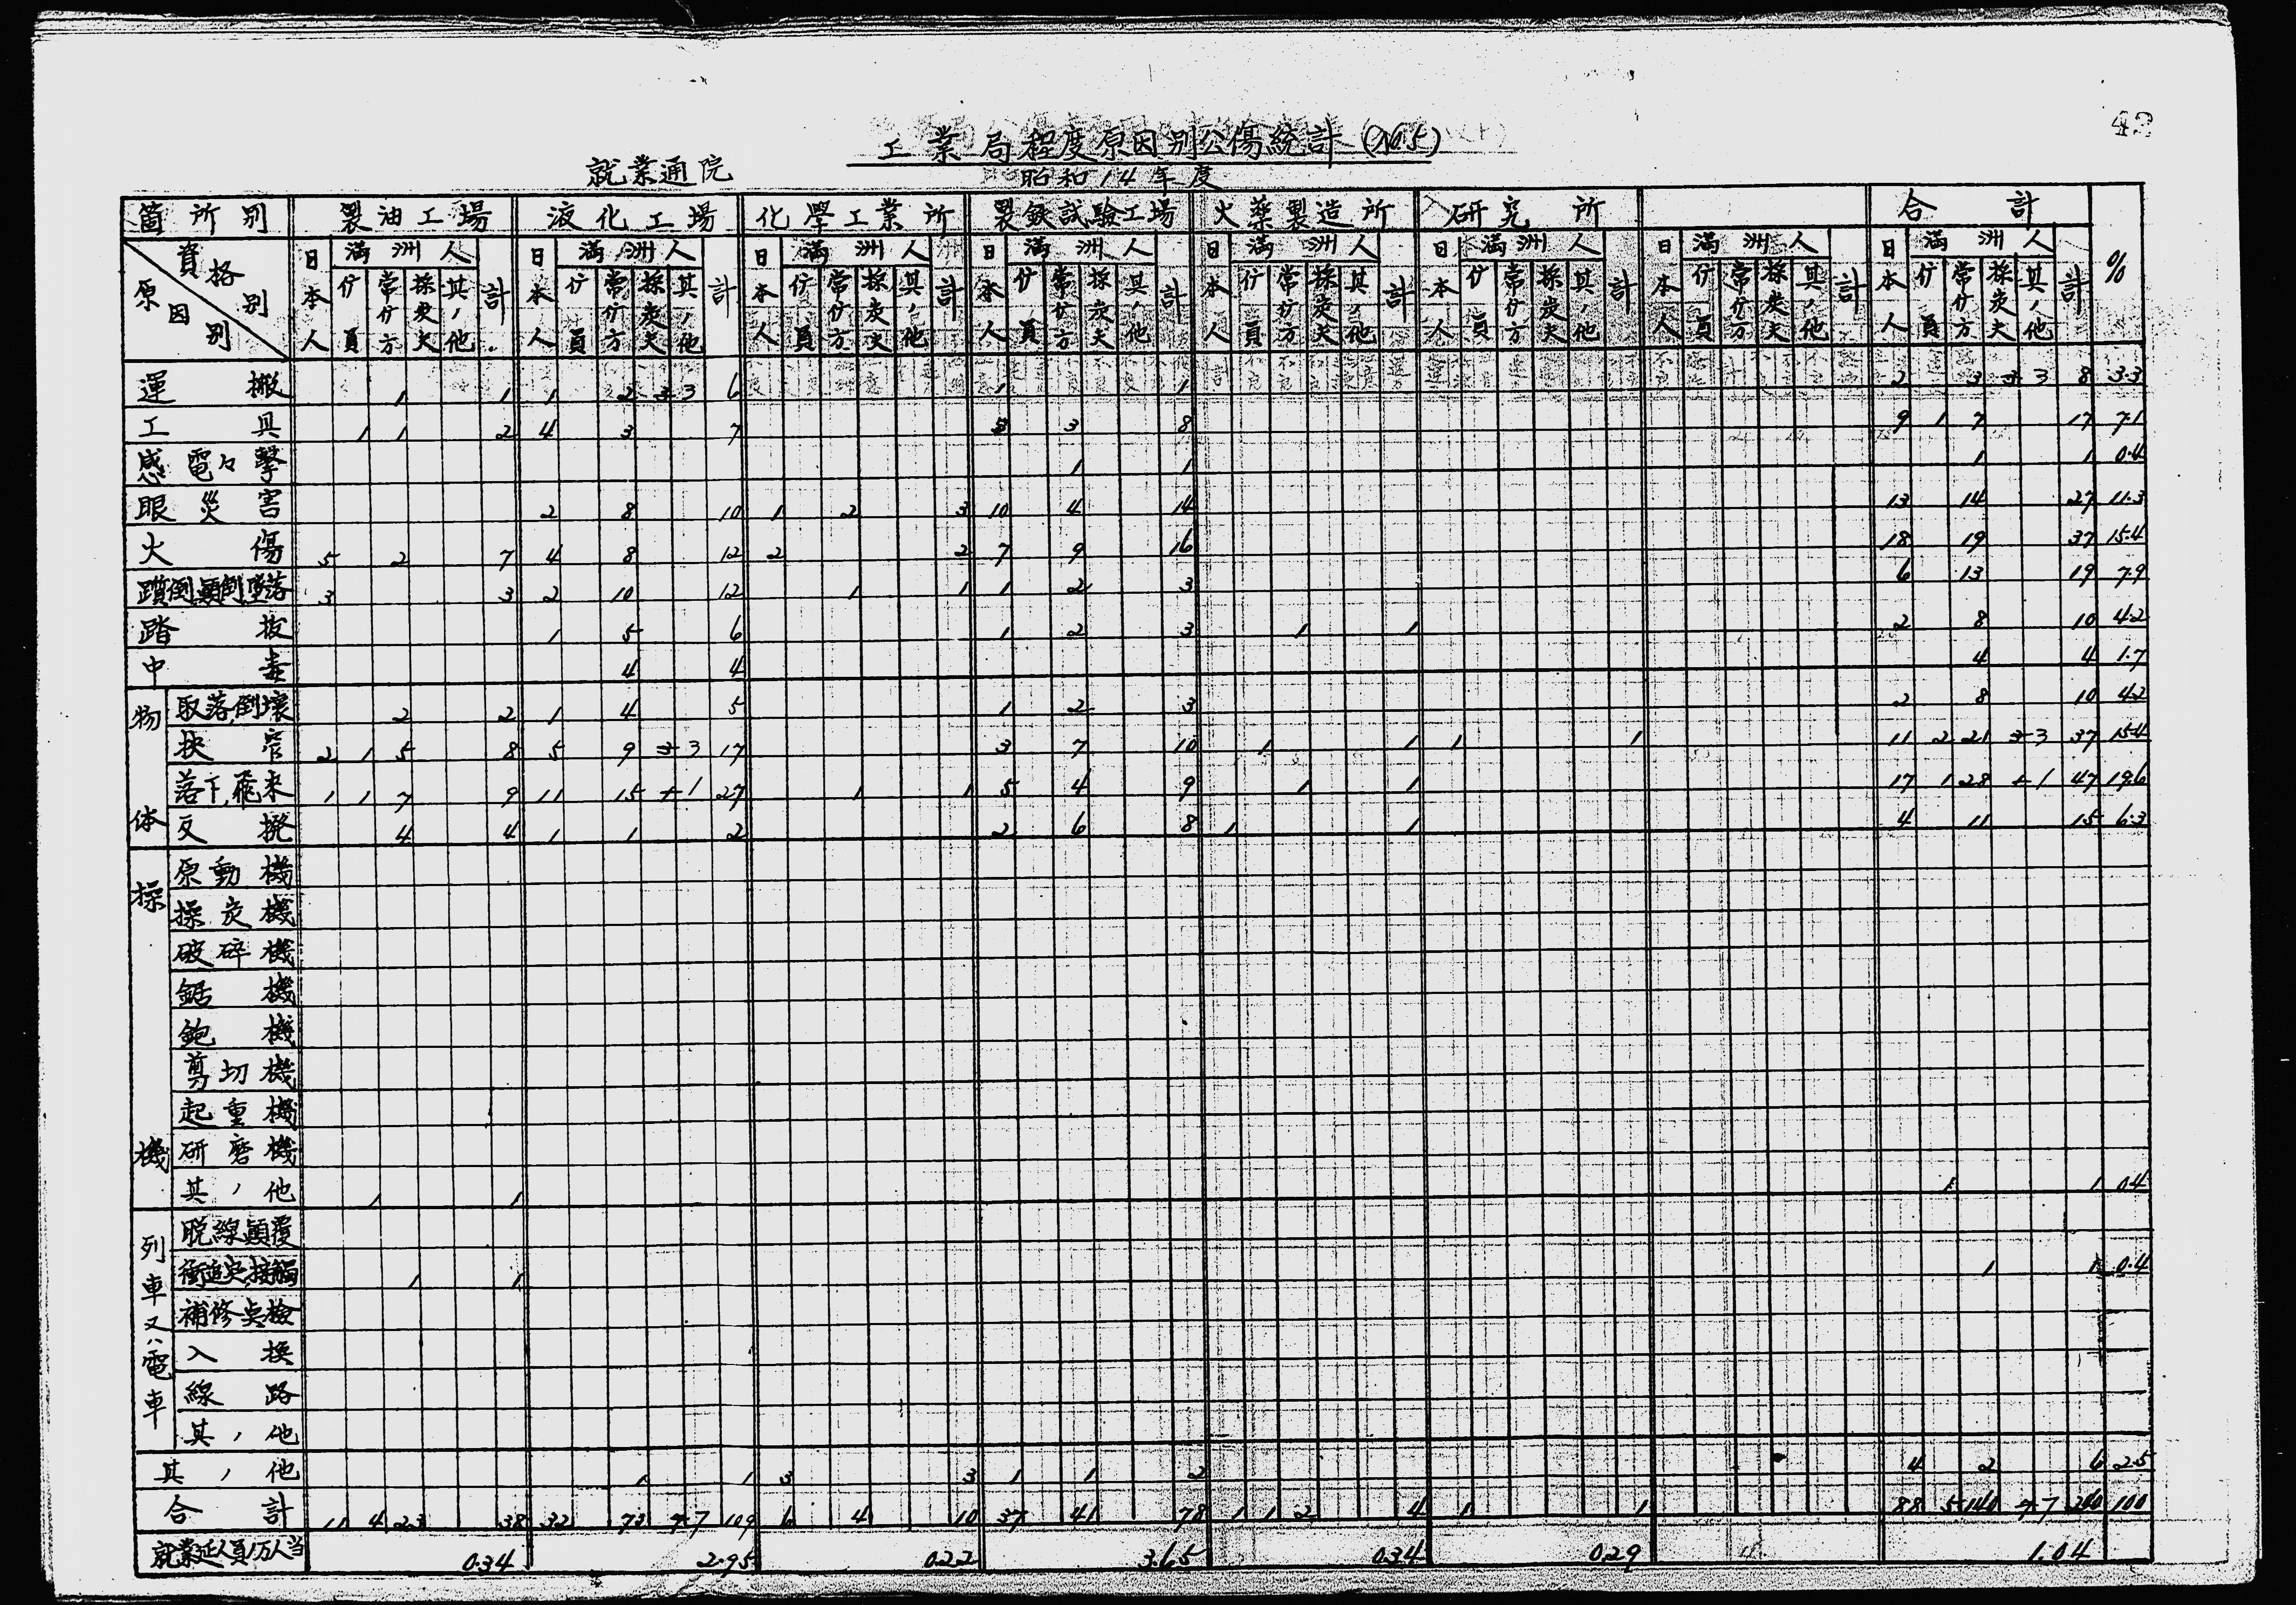 43
工業局程度原因別公傷統計 (No.5)
就業通院
昭和14年度
箇所別 製油工場 液化工場 化學工業所 製鉄試験工場 火薬製造所 研究所 合計 %
資格別 原因別 日本人 満洲人 計 日本人 満洲人 計 日本人 満洲人 計 日本人 満洲人 計 日本人 満洲人 計 日本人 満洲人 計 日本人 満洲人 計 日本人 満洲人 計
員 常 方 採炭夫 其ノ他 員 常 方 採炭夫 其ノ他 員 常 方 採炭夫 其ノ他 員 常 方 採炭夫 其ノ他 員 常 方 採炭夫 其ノ他 員 常 方 採炭夫 其ノ他 員 常 方 採炭夫 其ノ他 員 常 方 採炭夫 其ノ他
運搬 1 1 1 2 3 6 1 1 2 3 3 8 3.3
工具 1 1 2 4 3 7 5 3 8 9 1 7 17 7.1
感電々撃 1 1 1 1 0.4
眼災害 2 8 10 1 2 3 10 4 14 13 14 27 11.3
火傷 5 2 7 4 8 12 2 2 7 9 16 18 19 37 15.4
躓倒,顛倒,墜落 3 3 2 10 12 1 1 1 2 3 6 13 19 7.9
踏抜 1 5 6 1 2 3 1 1 2 8 10 4.2
中毒 4 4 4 4 1.7
物体 取落,倒壊 2 2 1 4 5 1 2 3 2 8 10 4.2
挟 2 1 5 8 5 9 3 17 3 7 10 1 1 1 1 11 2 21 3 37 15.4
落下,飛来 1 1 7 9 11 15 1 27 1 1 5 4 9 1 1 17 1 28 1 47 19.6
反撥 4 4 1 1 2 2 6 8 1 1 4 11 15 6.3
操機 原動機
採炭機
破碎機
鋸機
鉋機
剪切機
起重機
研磨機
其ノ他 1 1 1 1 0.4
列車又ハ電車 脱線顛覆
衝追突,接觸 1 1 1 1 0.4
補修点検
入換
線路
其ノ他
其ノ他 1 1 3 3 1 1 2 4 2 6 2.5
合計 11 4 23 38 32 73 7 109 6 4 10 37 41 78 1 1 2 4 1 1 88 5 140 7 240 100
就業延人員1万人当 0.34 2.95 0.22 3.65 0.34 0.29 1.04